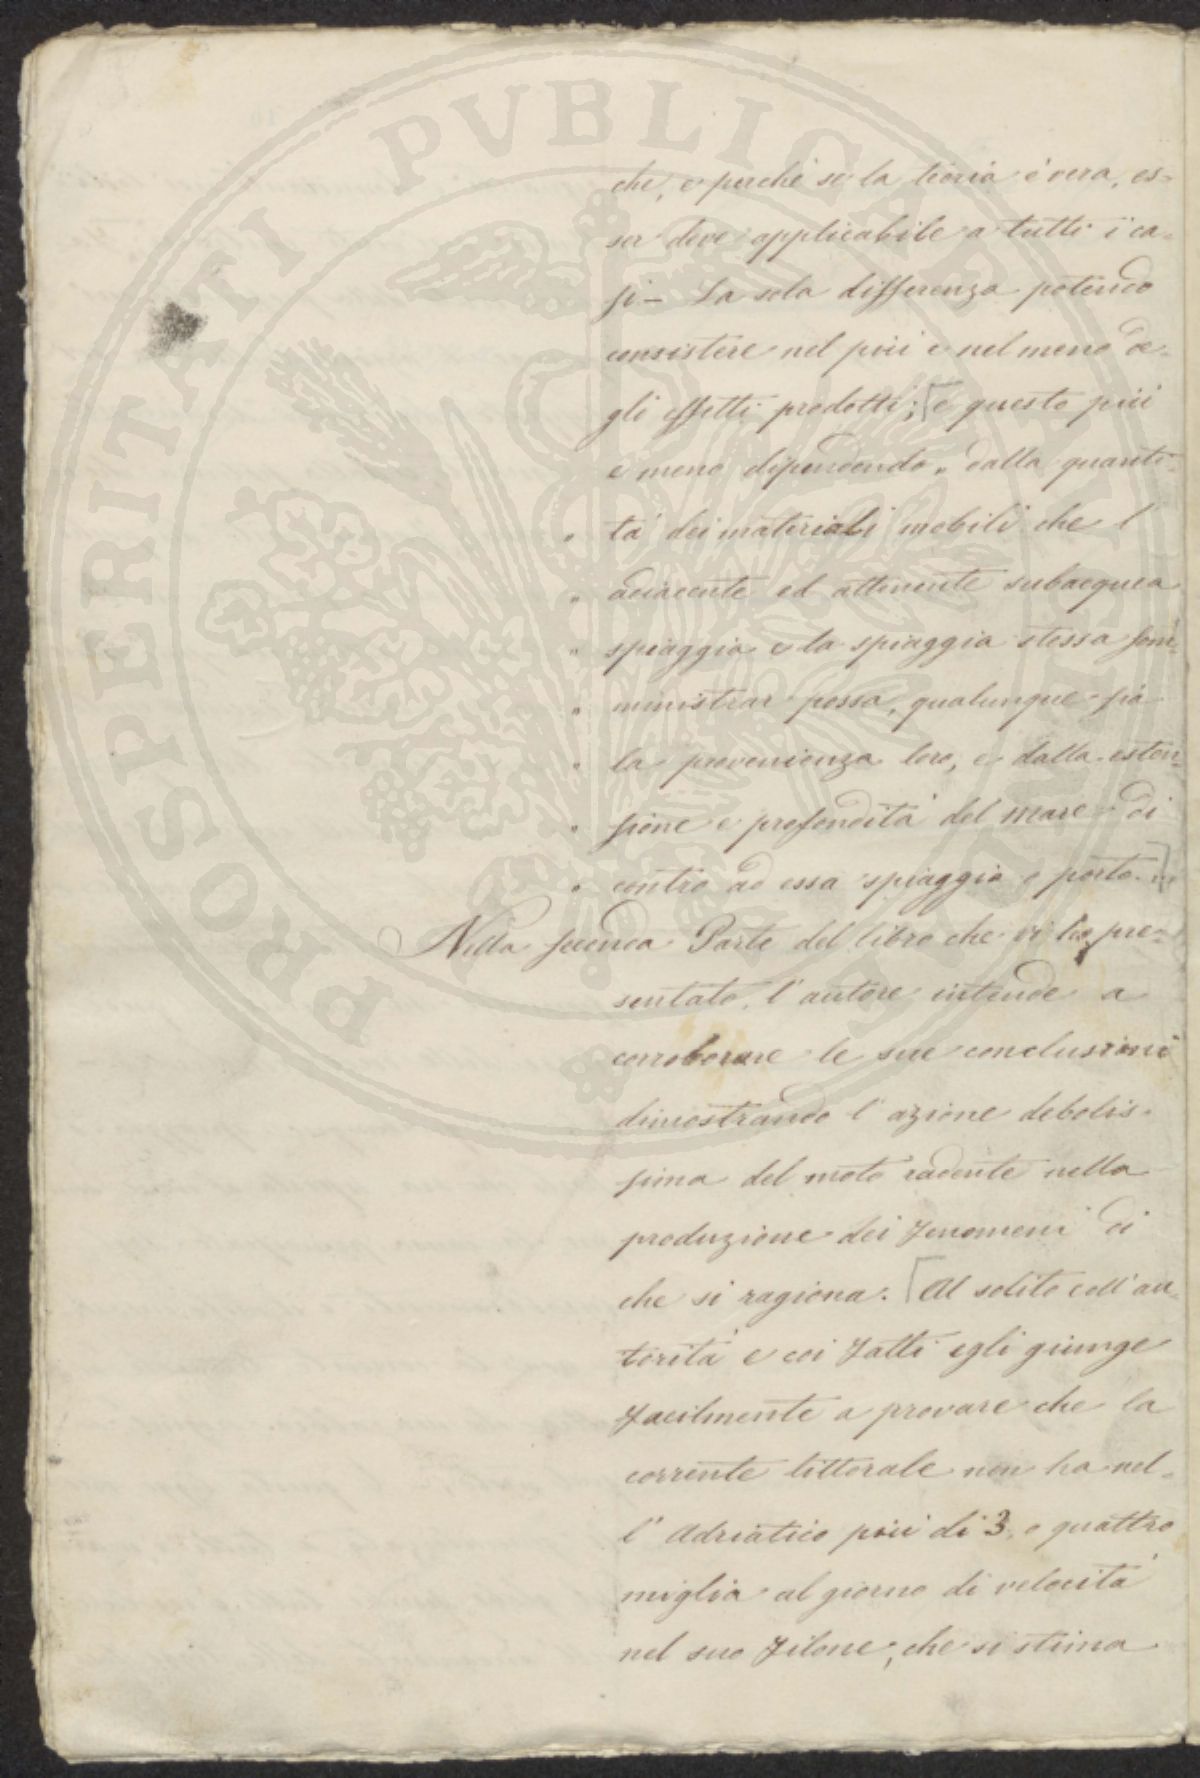 che, e perchè se la tioria è vera, es=
ser deve applicabile a tutti i ca=
si – La sola differenza potendo
consistere nel più e nel meno de=
gli effetti prodotti; [e questo più
e meno dipendendo „ dalla quanti=
„ tà dei materiali mobili che l
„ adiacente ed attinente subacquea
„ spiaggia e la spiaggia stessa som=
„ ministrar possa, qualunque sia
„ la provenienza loro, e dalla esten=
„ sione e profondità del mare di
„ contro ad essa spiaggia o porto.]„
Nella seconda Parte del libro che vi ho pre=
sentato, l'autore intende a
corroborare le sue conclusioni
dimostrando l'azione debolis=
sima del moto radente nella
produzione dei fenomeni di
che si ragiona. [Al solito coll'au=
torità e coi fatti egli giunge
facilmente a provare che la
corrente littorale non ha nel=
l'Adriatico più di 3 o quattro
miglia al giorno di velocità
nel suo filone, che si stima
PROSPERITATI PVBLICAE